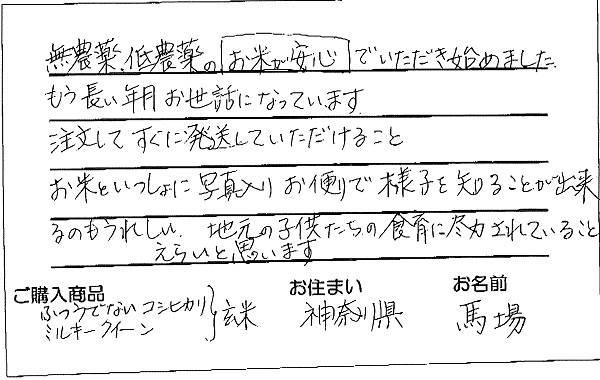 無農薬、低農薬のお米が安心でいただき始めました
もう長い年月お世話になっています
注文してすぐに発送していただけること
お米といっしょに写真入りお便りで様子を知ることが出来
るのもうれしい、地元の子供たちの食育に尽力されていること
えらいと思います
ご購入商品 お住まい お名前
ふつうでないコシヒカリ
ミルキークイーン 玄米 神奈川県 馬場